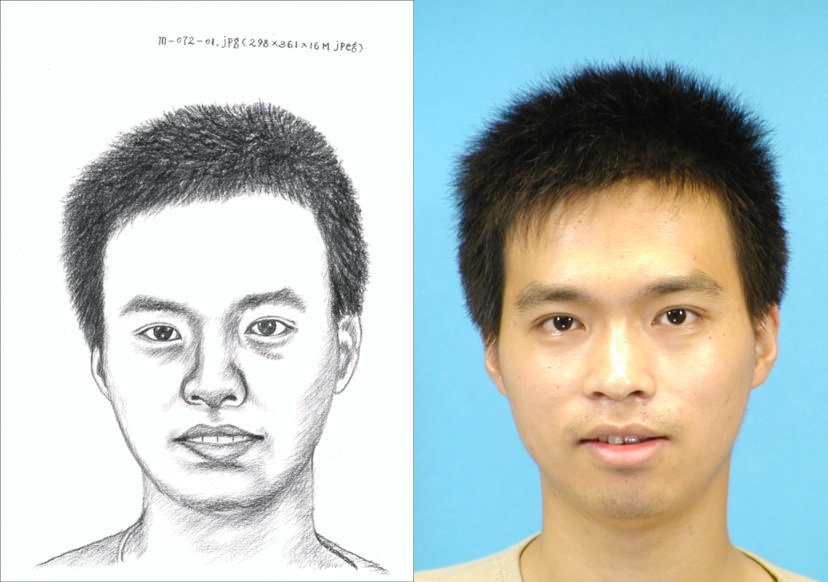 m-072-01.jpg(298×361×16M jpeg)